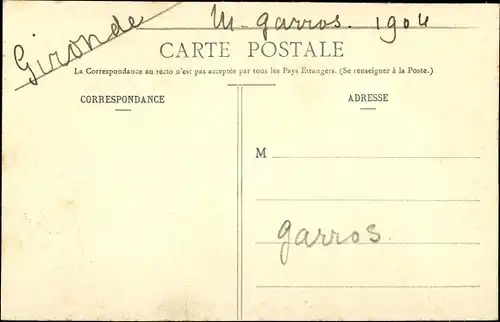 Gironde
M. garros. 1904
CARTE POSTALE
La Correspondance au recto n'est pas acceptée par tous les Pays Étrangers. (Se renseigner à la Poste.)
CORRESPONDANCE
ADRESSE
M
garros.